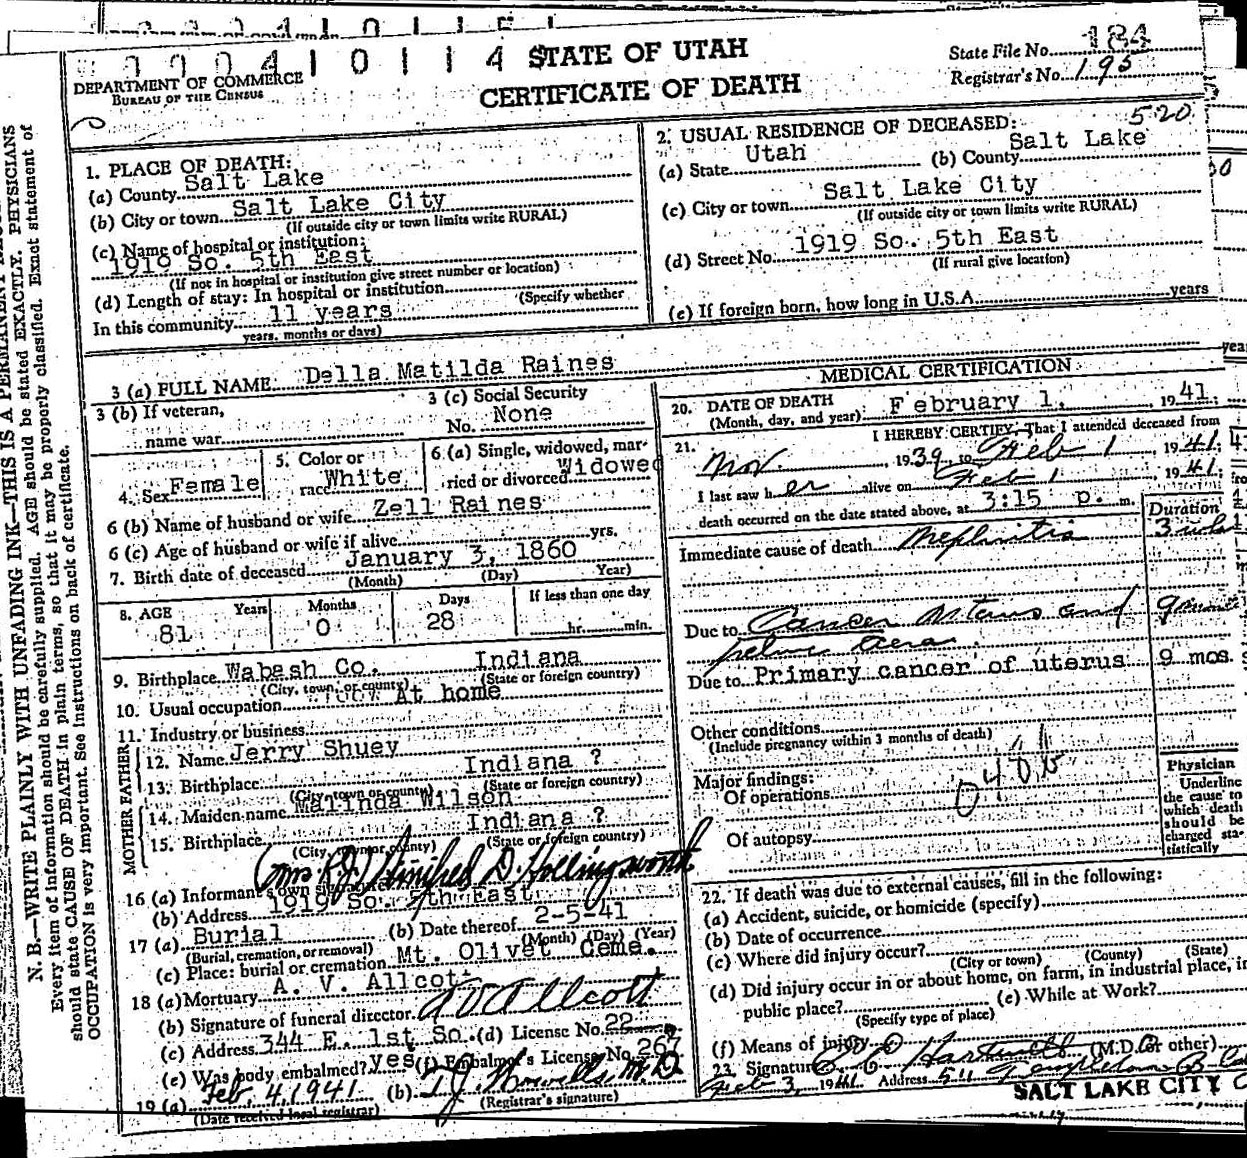 90410114 STATE OF UTAH
CERTIFICATE OF DEATH
DEPARTMENT OF COMMERCE
BUREAU OF THE CENSUS
State File No. 184
Registrar's No. 195
520
1. PLACE OF DEATH:
(a) County Salt Lake
(b) City or town Salt Lake City
(If outside city or town limits write RURAL)
(c) Name of hospital or institution:
1919 So. 5th East
(If not in hospital or institution give street number or location)
(d) Length of stay: In hospital or institution
(Specify whether
In this community 11 years
years, months or days)
2. USUAL RESIDENCE OF DECEASED:
(a) State Utah (b) County Salt Lake
(c) City or town Salt Lake City
(If outside city or town limits write RURAL)
(d) Street No. 1919 So. 5th East
(If rural give location)
(e) If foreign born, how long in U.S.A. years
3 (a) FULL NAME: Della Matilda Raines
3 (b) If veteran,
name war
3 (c) Social Security
No. None
4. Sex Female
5. Color or
race White
6 (a) Single, widowed, mar-
ried or divorced Widowed
6 (b) Name of husband or wife Zell Raines
6 (c) Age of husband or wife if alive yrs.
7. Birth date of deceased January 3, 1860
(Month) (Day) Year)
8. AGE Years Months Days If less than one day
81 0 28 hr. min.
9. Birthplace Wabash Co. Indiana
(City, town, or county) (State or foreign country)
10. Usual occupation At home
11. Industry or business
MOTHER FATHER
12. Name Jerry Shuey
13. Birthplace Indiana ?
(City, town or county) (State or foreign country)
14. Maiden name Malinda Wilson
15. Birthplace Indiana ?
(City, town or county) (State or foreign country)
16 (a) Informant's own signature (Mrs R.J.) Winifred D. Hollingsworth
(b) Address 1919 So. 5th East
17 (a) Burial (b) Date thereof 2-5-41
(Burial, cremation, or removal) (Month) (Day) (Year)
(c) Place: burial or cremation Mt. Olivet Ceme.
18 (a) Mortuary A. V. Allcott
(b) Signature of funeral director A V Allcott
(c) Address 344 E. 1st So. (d) License No. 22
(e) Was body embalmed? yes (f) Embalmer's License No. 267
19 (a) Feb. 4, 1941 (b) T.J. Howells M.D.
(Date received local registrar) (Registrar's signature)
MEDICAL CERTIFICATION
20. DATE OF DEATH
(Month, day, and year): February 1, 1941
21. I HEREBY CERTIFY, That I attended deceased from
Nov. 1939, to Feb 1 1941
I last saw her alive on Feb 1 1941
death occurred on the date stated above, at 3:15 p. m.
Duration
Immediate cause of death Nephritis 3 wks
Due to Cancer uterus and 9 months
pelvic area
Due to Primary cancer of uterus 9 mos.
Other conditions
(Include pregnancy within 3 months of death)
Major findings:
Of operations
Of autopsy
Physician
Underline
the cause to
which death
should be
charged sta-
tistically
22. If death was due to external causes, fill in the following:
(a) Accident, suicide, or homicide (specify)
(b) Date of occurrence
(c) Where did injury occur?
(City or town) (County) (State)
(d) Did injury occur in or about home, on farm, in industrial place, in
public place? (e) While at Work?
(Specify type of place)
(f) Means of injury
23. Signature Hartwell (M.D. or other)
Feb 3, 1941 Address 511 Templeton B
SALT LAKE CITY
N. B.—WRITE PLAINLY WITH UNFADING INK—THIS IS A PERMANENT
Every item of information should be carefully supplied. AGE should be stated EXACTLY. PHYSICIANS
should state CAUSE OF DEATH in plain terms, so that it may be properly classified. Exact statement of
OCCUPATION is very important. See instructions on back of certificate.